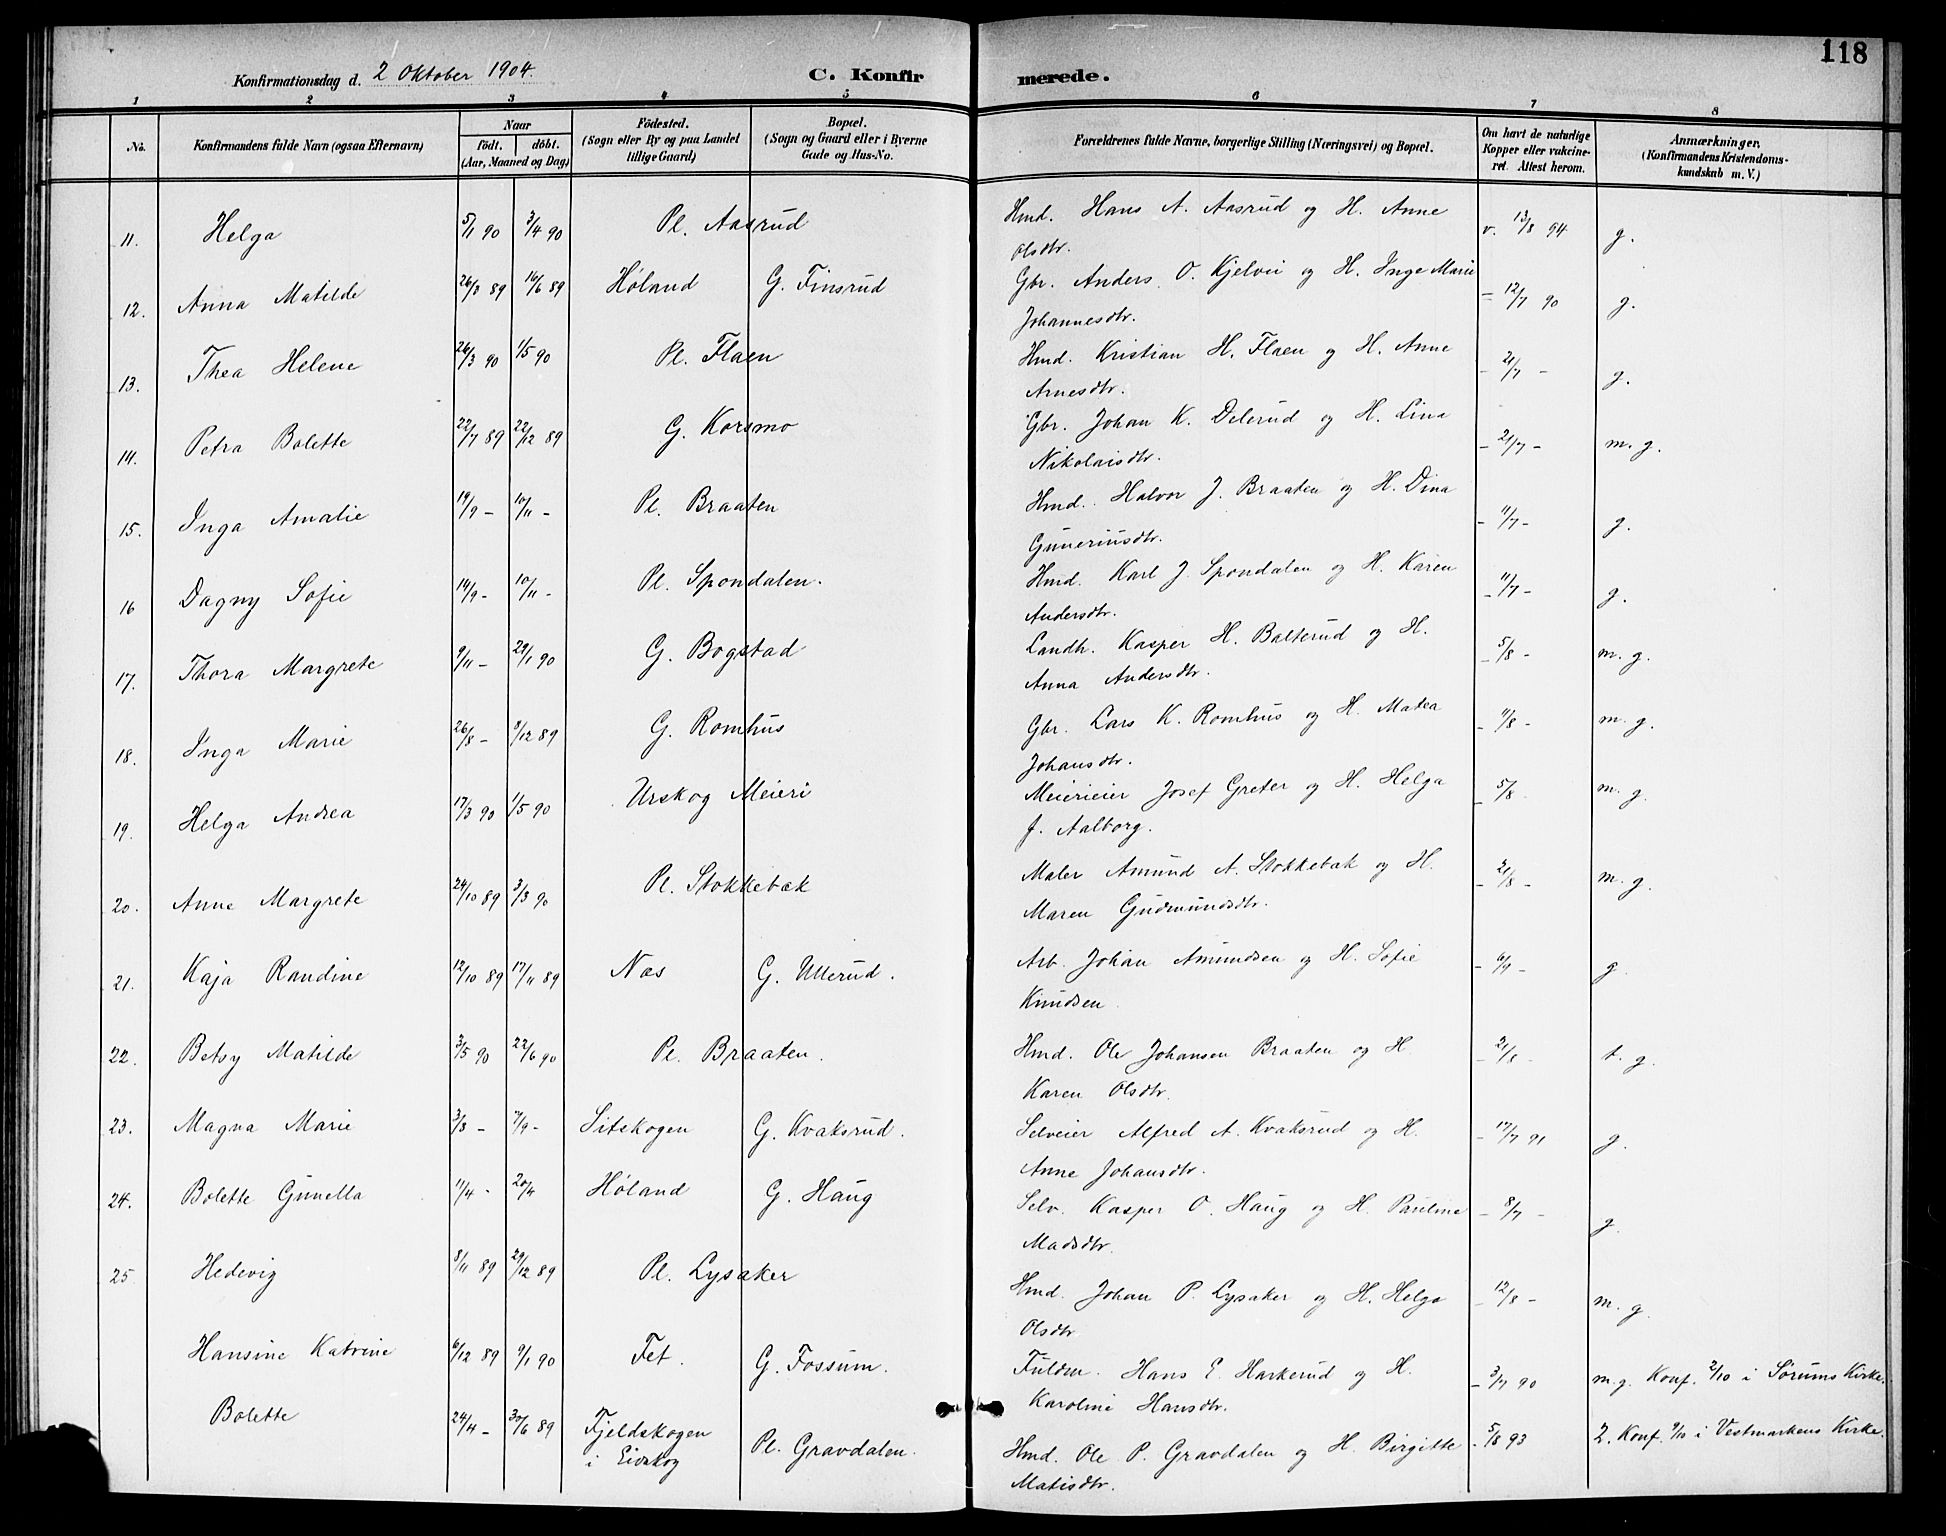 118
Konfirmationsdag d. 2 Oktober 1904.
C. Konfir merede.
1 2 3 4 5 6 7 8
No.
Konfirmandens fulde Navn (ogsaa Efternavn)
Naar
födt. döbt.
(Aar, Maaned og Dag)
Födested.
(Sogn eller By og paa Landet
tillige Gaard)
Bopæl.
(Sogn og Gaard eller i Byerne
Gade og Hus-No.
Forældrenes fulde Navne, borgerlige Stilling (Næringsvei) og Bopæl.
Om havt de naturlige
Kopper eller vakcine-
ret. Attest herom.
Anmærkninger.
(Konfirmandens Kristendoms-
kundskab m. V.)
11. Helga 5/1 90 3/4 90 Pl. Aasrud Hmd. Hans A. Aasrud og H. Anne v. 13/8 94 g.
Olsdtr.
12. Anna Matilde 26/3 89 16/6 89 Høland G. Finsrud Gbr. Anders O. Kjelvei og H. Inge Marie – 12/7 90 g.
Johannesdtr.
13. Thea Helene 26/3 90 1/5 90 Pl. Flaen Hmd. Kristian H. Flaen og H. Anne – 21/7 – g.
Arnesdtr.
14. Petra Bolette 22/7 89 22/12 89 G. Korsmo Gbr. Johan K. Delerud og H. Lina – 21/7 – m. g.
Nikolaisdtr.
15. Inga Amalie 19/9 – 10/11 – Pl. Braaten Hmd. Halvor J. Braaten og H. Dina – 11/7 – g.
Guneriusdtr.
16 Dagny Sofie 14/9 – 10/11 – Pl. Spondalen. Hmd. Karl J. Spondalen og H. Karen – 11/7 – g.
Andersdtr.
17. Thora Margrete 9/11 – 29/1 90 G. Bogstad Landh. Kasper H. Balterud og H. – 5/8 – m. g.
Anna Andersdtr.
18. Inga Marie 26/8 – 8/12 89 G. Romhus Gbr. Lars K. Romhus og H. Matea – 11/8 – m. g.
Johansdtr.
19. Helga Andrea 17/3 90 1/5 90 Urskog Meieri Meierieier Josef Greter og H. Helga – 5/8 – m. g.
f. Aalborg.
20. Anne Margrete 24/10 89 3/3 90 Pl. Stokkebæk Maler Amund A. Stokkebæk og H. – 21/8 – m. g.
Maren Gudmundsdtr.
21. Kaja Randine 12/10 89 17/11 89 Næs G. Ullerud. Arb. Johan Amundsen og H. Sofie – 6/9 – g.
Knudsen
22. Betsy Matilde 3/5 90 22/6 90 Pl. Braaten. Hmd. Ole Johansen Braaten og H. – 21/8 – t. g.
Karen Olsdtr.
23. Magna Marie 3/8 – 7/9 – Sitskogen G. Kvaksrud. Selveier Alfred A. Kvaksrud og H. – 17/7 91 g.
Anne Johansdtr.
24. Bolette Gunella 11/4 – 20/4 Høland G. Haug Selv. Kasper O. Haug og H. Pauline – 8/7 – g.
Madsdtr.
25. Hedevig 8/11 89 29/12 89 Pl. Lysaker Hmd. Johan P. Lysaker og H. Helga – 12/8 – m. g.
Olsdtr.
Hansine Katrine 6/12 89 9/1 90 Fet. G. Fossum. Fuldm. Hans E. Harkerud og H. – 3/7 90 m. g. Konf. 2/10 i Sørums Kirke.
Karoline Hansdtr.
Bolette 24/4 – 30/6 89 Fjeldskogen Pl. Gravdalen. Hmd. Ole P. Gravdalen og H. Birgitte – 5/8 93 2. Konf. 9/10 i Vestmarkens Kirke.
i Eidskog Matisdtr.